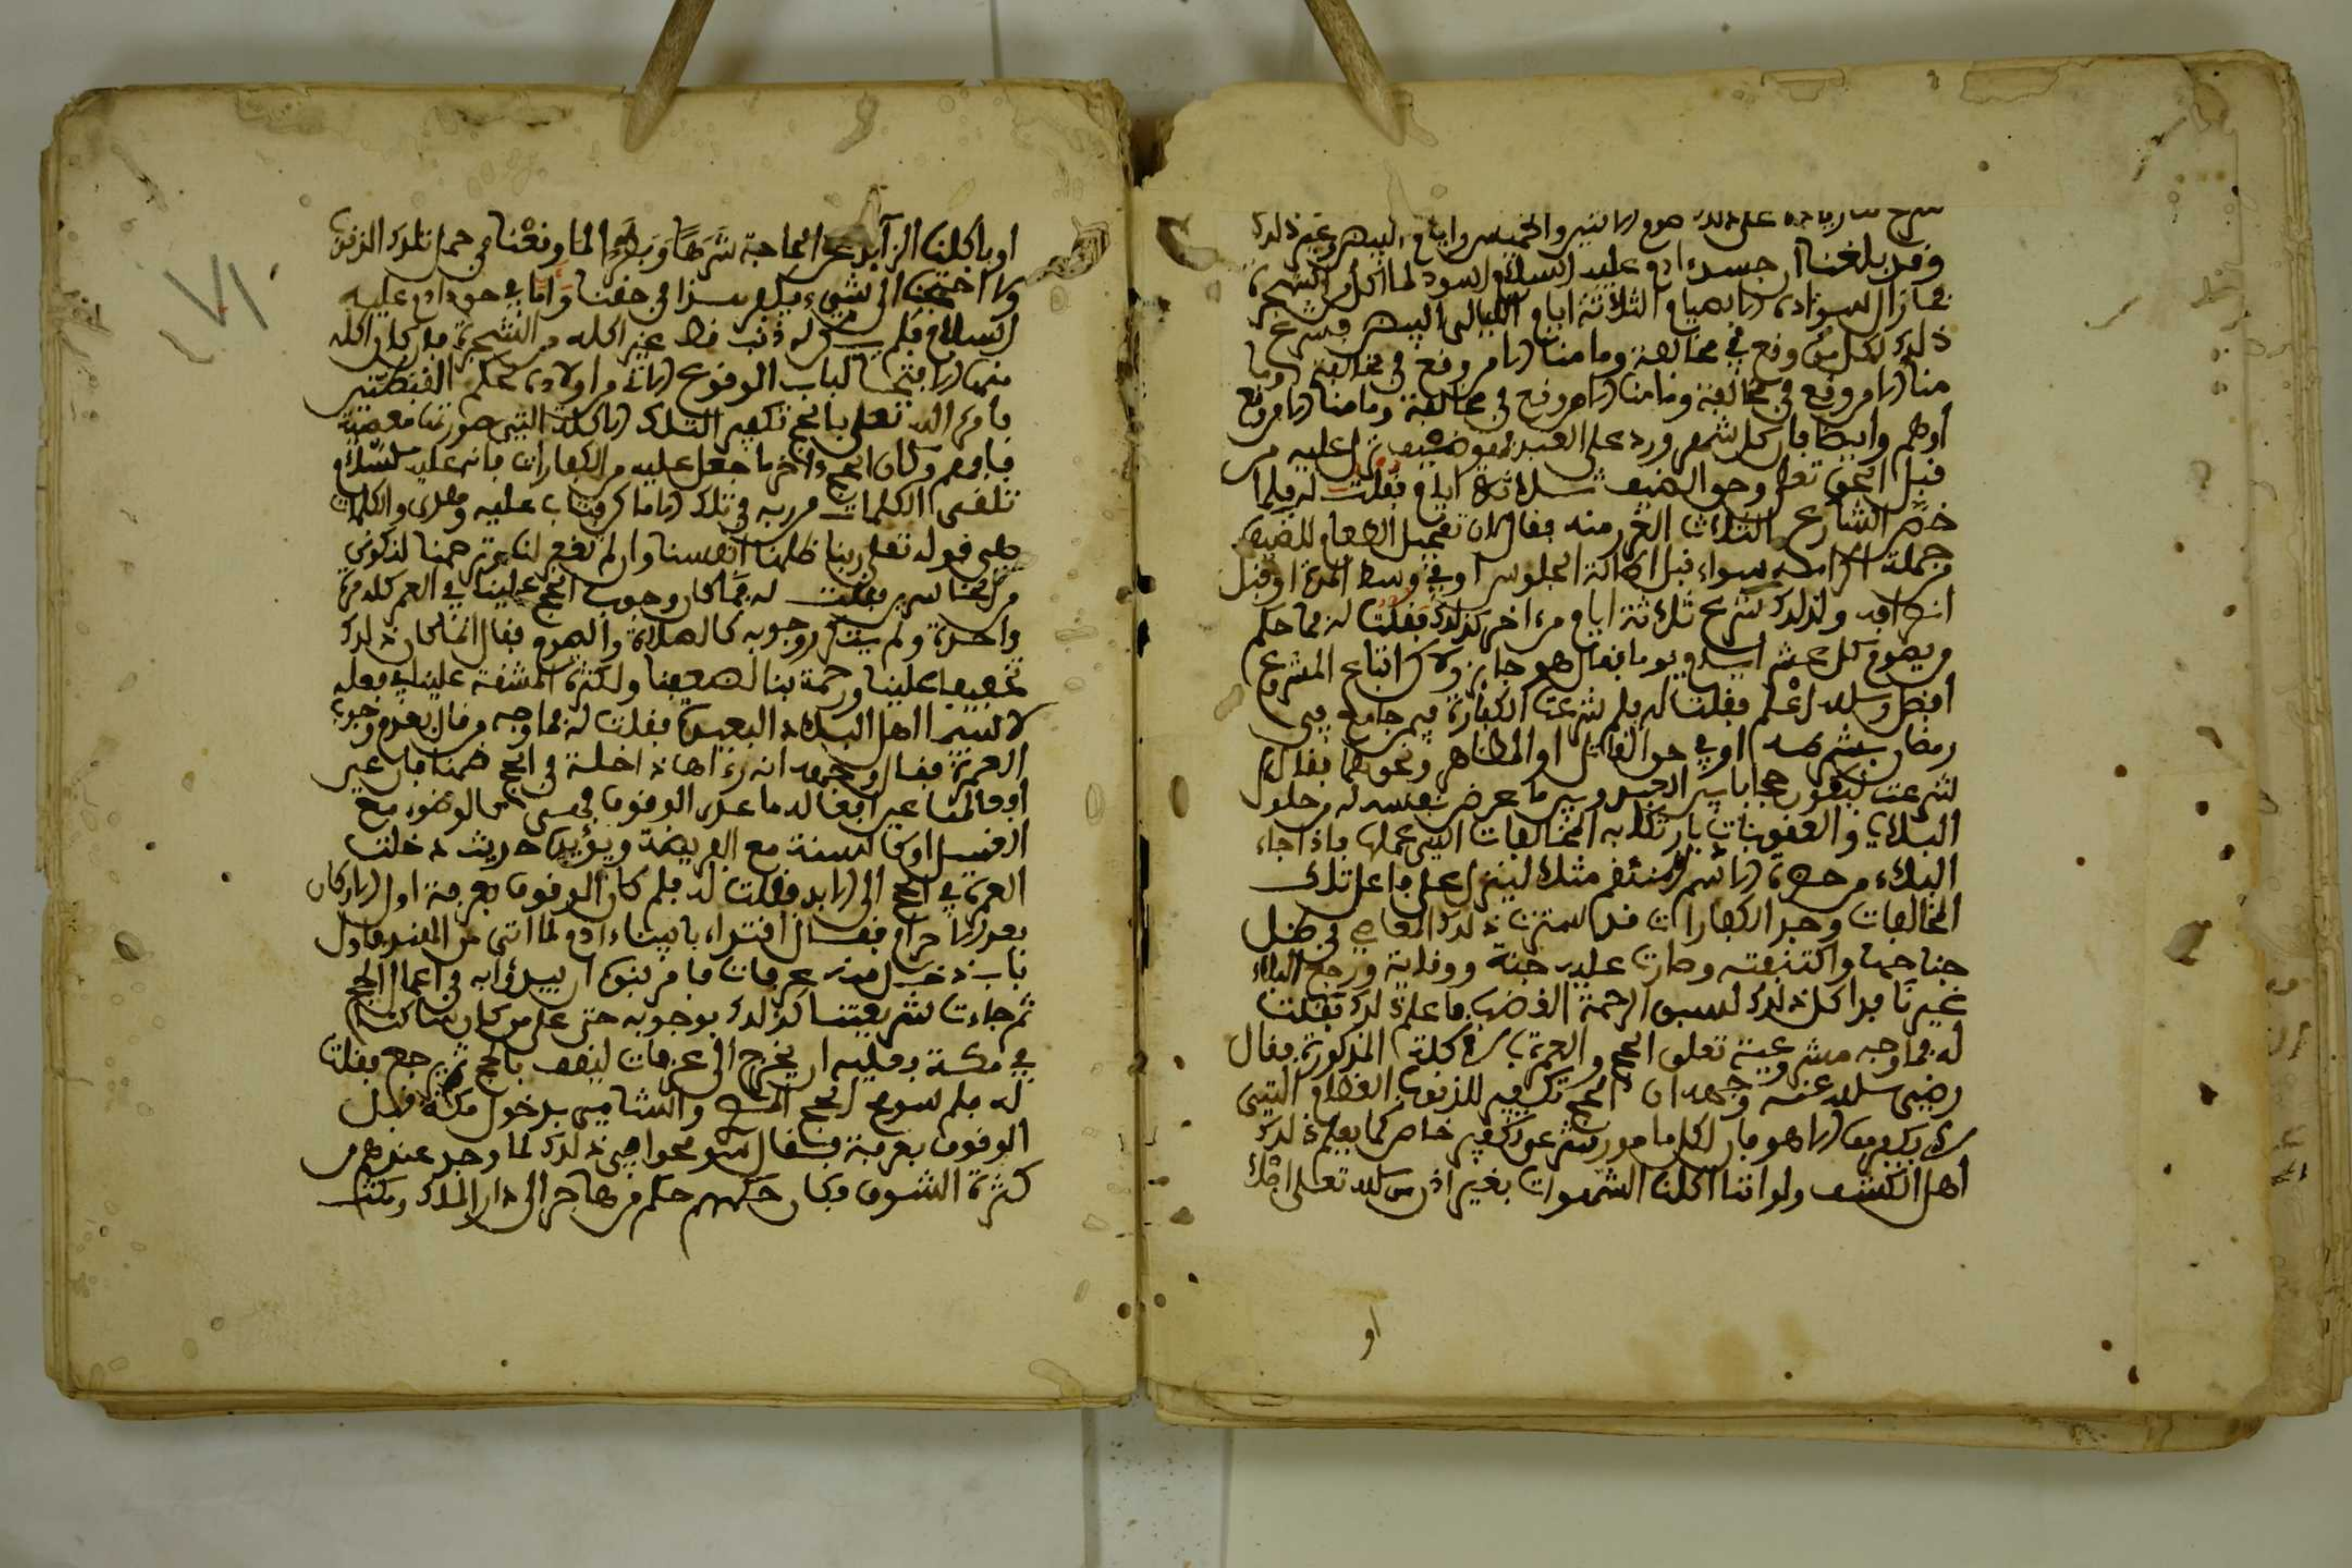 شرع لنا زيادة على ذلك صوم الاثنين والخميس وايام البيض وغير ذلك
وقد بلغنا ان جسد ادم عليه السلام اسود لما اكل من الشجرة
فما زال السواد الا بصيام الثلاثة ايام الليالى البيض فشرع
ذلك لكل من وقع في مخالفة وما منا الا من وقع في مخالفة وما
منا الا من وقع في مخالفة وما منا الا من وقع في مخالفة وما منا الا من وقع
أوهم وايضا فان كل شهر ورد على العبد فهو ضيف نزل عليه من
قبل الحق تعلى وحق الضيف ثلاثة ايام فقلت له فلما
خص الشارع الثلاث الغرر منه فقال لان تعجيل الطعام للضيف
من جملة اكرامه سواء قبل اطالة الجلوس او في وسط المدة او قبل
انصرافه ولذلك شرع ثلاثة ايام من ءاخره كذلك فقلت له فما حكم
من يصوم كل عشر ايام يوما فقال هو جايز ولاكن اتباع المشروع
أفضل والله اعلم فقلت له فلم شرعت الكفارة فيمن جامع في
رمضان بشرطه او في حق القاتل او المظاهر ونحوهما فقال
شرعت لتكون حجابا بين العبد وبين ما عرض نفسه له من حلول
البلاء والعقوبات بارتكابه المخالفات التي عملها فاذا جاء
البلاء من حضرة الاسم المنتقم مثلا لينزل على فاعل تلك
المخالفات وجد الكفارات قد سترت ذلك العاصي في ظل
جناحها واكتنفته وصارت عليه جنة ووقاية ورجع البلاء
غير نافذ اكل ذلك لسبق الرحمة الغضب فاعلم ذلك فقلت
له فما وجه مشروعية تعلق الحج والعمرة بالاكلة المذكورة فقال
رضي الله عنه وجهه ان الحج تكفير للذنوب العظام التي
لا يكفرها الا هو فان لكل مامور شرعي تكفير خاص كما يعلم ذلك
أهل الكشف ولو اننا اكلنا الشهوات بغير اذن من الله تعلى
او
او باكلنا الزايد على الحاجة شرها وبطرا لما وقعنا في جميع تلك الذنوب
ولا احتجنا الى شيء يكفر بها في حقنا واما في حق ادم عليه
السلام فلم يكن له ذنب قط غير اكله من الشجرة بل كان اكله
منها الا فتحا لباب الوقوع الاتي من اولاده بحكم القبضتين
فامره الله تعلى بالحج تكفير التلك الاكلة التي صورتها معصية
فافهم وكان الحج ءاخر ما جعل عليه من الكفارات فانه عليه السلام
تلقى الكلمات من ربه في تلك الاماكن فتاب عليه وهدى والكلمات
هي قوله تعلى ربنا ظلمنا انفسنا وان لم تغفر لنا وترحمنا لنكونن
من الخاسرين فقلت له فما كان وجوب الحج علينا في العمر كله مرة
واحدة ولم يتكرر وجوبه كالصلاة والصوم فقال انما كان ذلك
تخفيفا علينا ورحمة بنا لضعفنا ولكثرة المشقة علينا في فعله
لا سيما اهل البلاد البعيدة فقلت له فما وجه من قال بعدم وجوب
العمرة فقال وجهه انه رءاها داخلة في الحج ضمنا فان عين
أفعالها عين افعاله ما عدى الوقوف فهي كالوضوء مع
الغسل او كالسنة مع الفريضة ويؤيده حديث دخلت
العمرة في الحج الى الابد فقلت له فلم كان الوقوف بعرفة اول الاركان
بعد الاحرام فقال اقتداء بابينا ادم لما اتى من الهند فاول
باب دخل منه عرفات فامر بنوه ان يبدؤا به في اعمال الحج
ثم جاءت شريعتنا كذلك بوجوبه حتى على من كان ساكنا
في مكة فعليه ان يخرج الى عرفات ليقف بالحج ثم يرجع فقلت
له فلم سومح الحج المصري والشامي بدخول مكة قبل
الوقوف بعرفة فقال سومحوا في ذلك لما وجد عندهم من
كثرة الشوق فكان حكمهم حكم من هاجر الى دار الملك